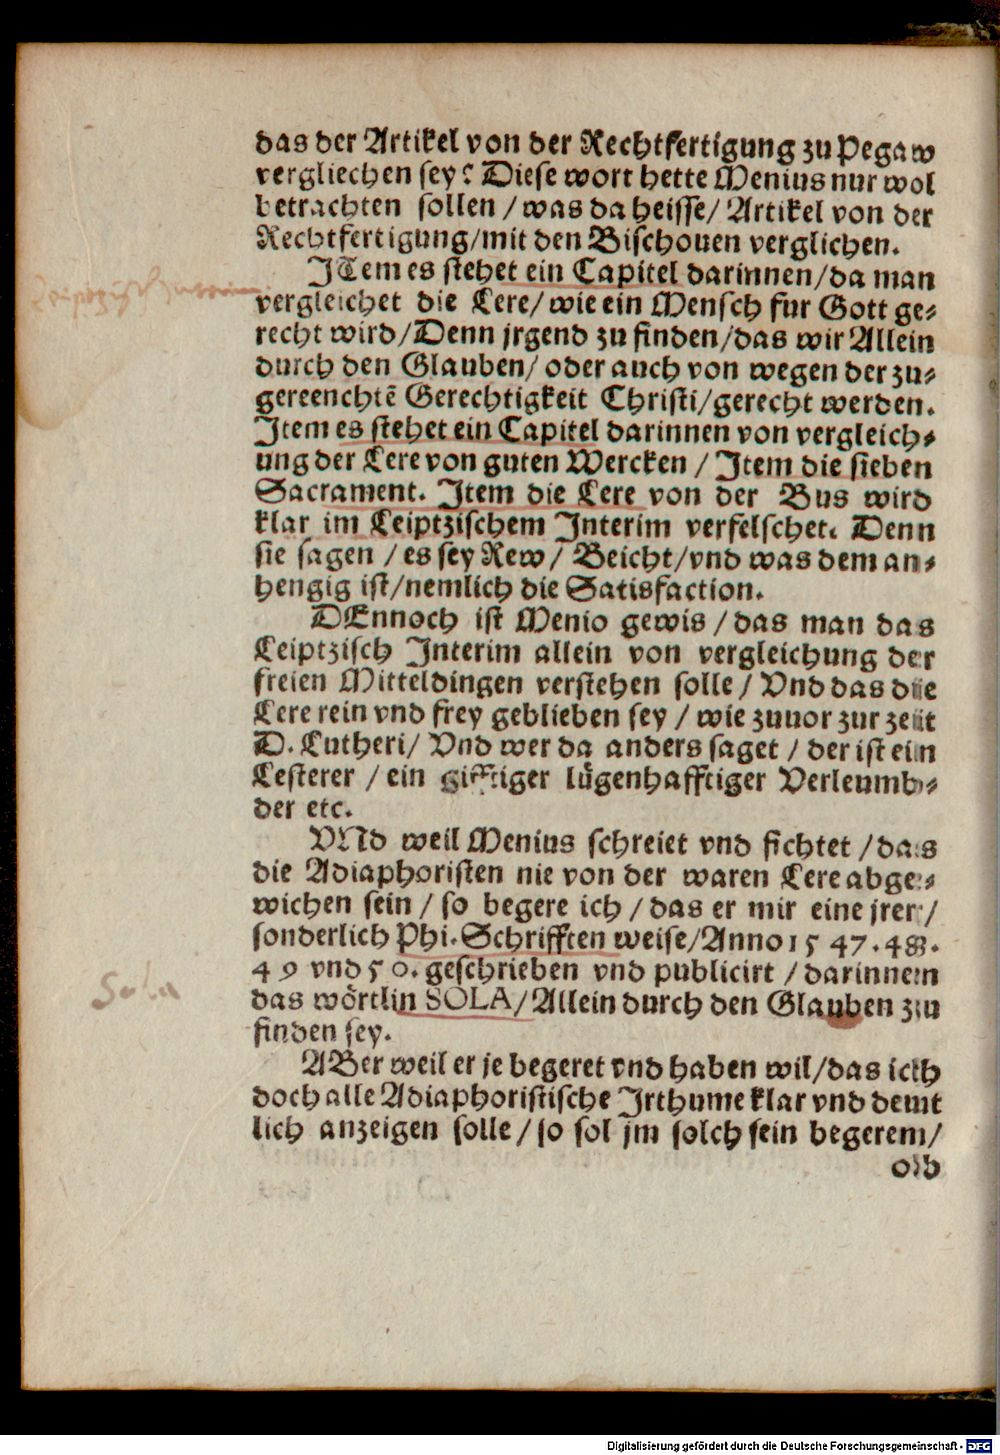 das der Artikel von der Rechtfertigung zu Pegaw
vergliechen sey? Diese wort hette Menius nur wol
betrachten sollen / was da heisse / Artikel von der
Rechtfertigung / mit den Bischouen verglichen.
JTem es stehet ein Capitel darinnen / da man
vergleichet die Lere / wie ein Mensch fur Gott ge⸗
recht wird / Denn jrgend zu finden / das wir Allein
durch den Glauben / oder auch von wegen der zu⸗
gereenchtē Gerechtigkeit Christi / gerecht werden.
Jtem es stehet ein Capitel darinnen von vergleich⸗
ung der Lere von guten Wercken / Jtem die sieben
Sacrament. Jtem die Lere von der Bus wird
klar im Leiptzischem Jnterim verfelschet. Denn
sie sagen / es sey Rew / Beicht / vnd was dem an⸗
hengig ist / nemlich die Satisfaction.
DEnnoch ist Menio gewis / das man das
Leiptzisch Jnterim allein von vergleichung der
freien Mitteldingen verstehen solle / Vnd das die
Lere rein vnd frey geblieben sey / wie zuuor zur zeit
D. Lutheri / Vnd wer da anders saget / der ist ein
Lesterer / ein gifftiger lügenhafftiger Verleumb⸗
der etc.
VNd weil Menius schreiet vnd fichtet / das
die Adiaphoristen nie von der waren Lere abge⸗
wichen sein / so begere ich / das er mir eine jrer /
sonderlich Phi. Schrifften weise / Anno 1547. 48.
49 vnd 50. geschrieben vnd publicirt / darinnen
das wörtlin SOLA / Allein durch den Glauben zu
finden sey.
ABer weil er je begeret vnd haben wil / das ich
doch alle Adiaphoristische Jrthume klar vnd deut
lich anzeigen solle / so sol jm solch sein begeren /
ob
Leiptzisch Interim
Sola
Digitalisierung gefördert durch die Deutsche Forschungsgemeinschaft - DFG